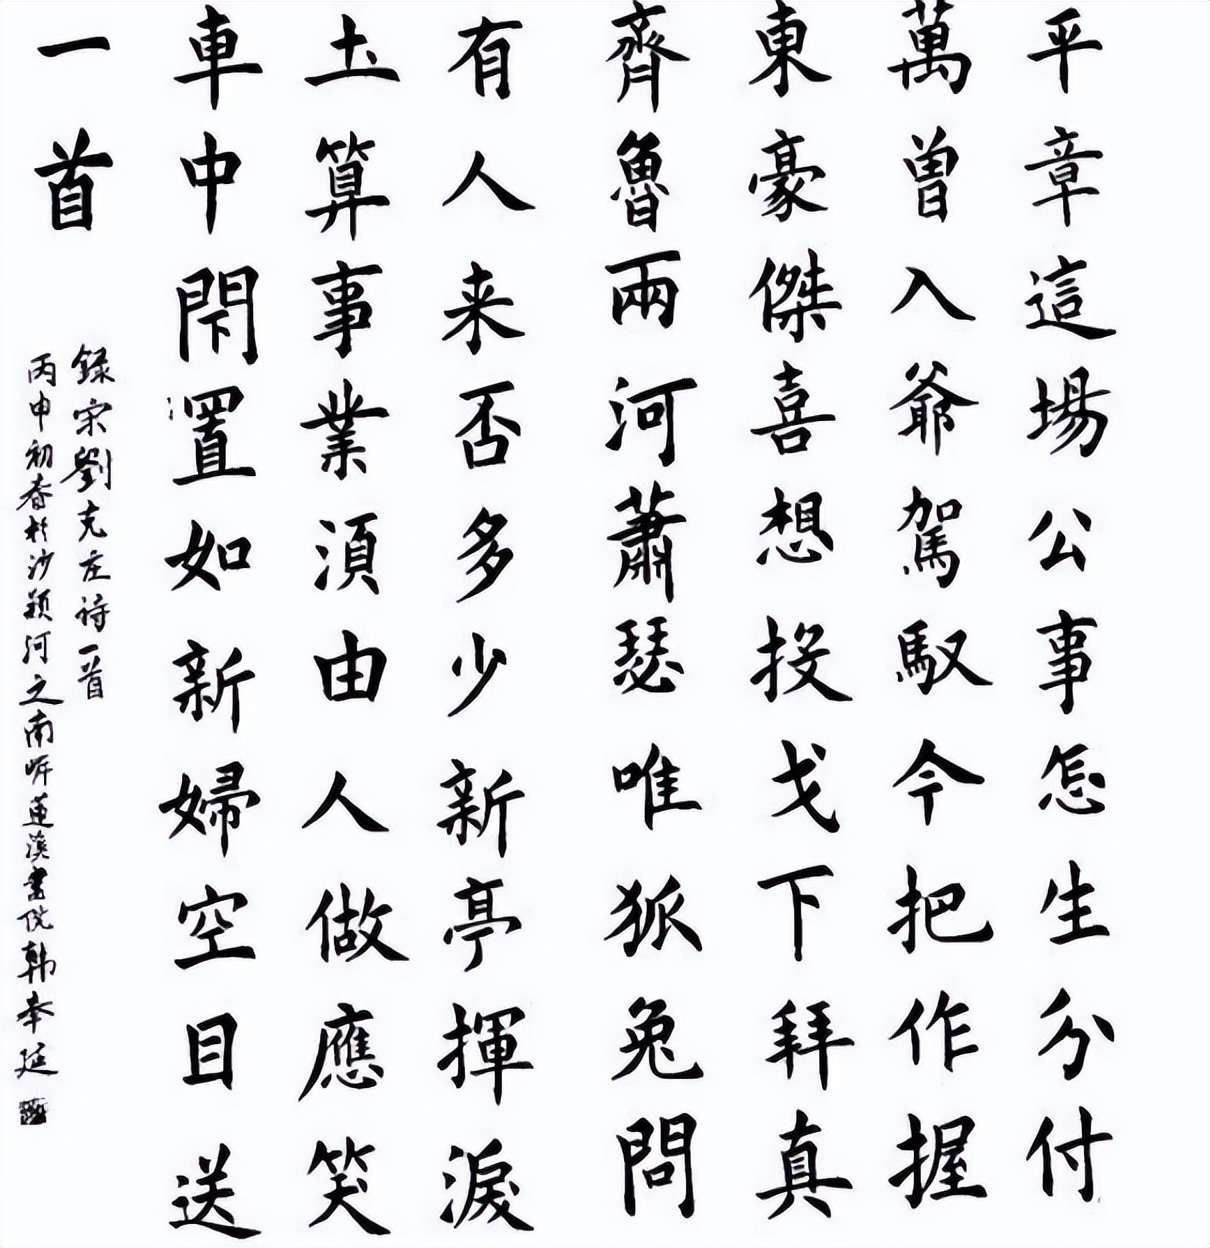 平章這場公事怎生分付
萬曾入爺駕馭今把作握
東豪傑喜想投戈下拜真
齊魯兩河蕭瑟唯狐兔問
有人来否多少新亭揮淚
圡算事業湏由人做應笑
車中閇置如新婦空目送
一首
録宋劉克庄詩一首
丙申初春於沙颍河之南岸莲溪書院韩奉延